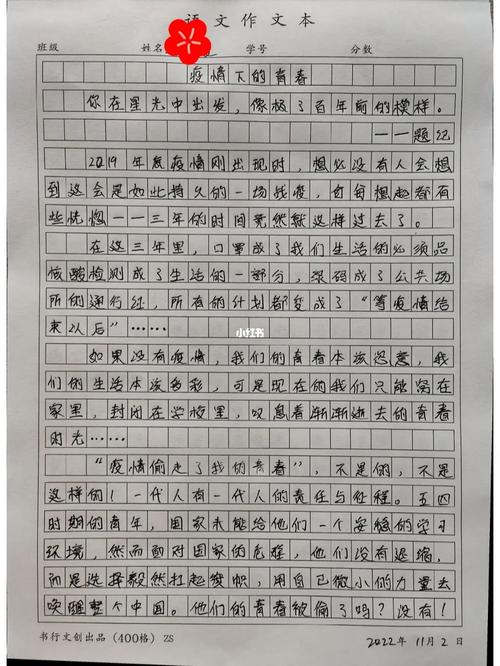 语文作文本
班级 姓名 学号 分数
疫情下的青春
你在星光中出发,像极了百年前的模样。
——题记
2019年底疫情刚出现时,想必没有人会想
到这会是如此持久的一场战疫,每每想起都有
些恍惚——三年的时间竟然就这样过去了。
在这三年里,口罩成了我们生活的必须品
核酸检测成了生活的一部分,绿码成了公共场
所的通行证,所有的计划都变成了“等疫情结
束以后”……
如果没有疫情,我们的青春本该恣意,我
们的生活本该多彩,可是现在的我们只能窝在
家里,封闭在学校里,叹息着渐渐逝去的青春
时光……
“疫情偷走了我的青春”,不是的,不是
这样的!一代人有一代人的责任与征程。五四
时期的青年,国家未能给他们一个安稳的学习
环境,然而面对国家的危难,他们没有退缩,
而是选择毅然扛起旗帜,用自己微小的力量去
唤醒整个中国。他们的青春被偷了吗?没有!
小红书
书行文创出品(400格) ZS
2022年11月2日